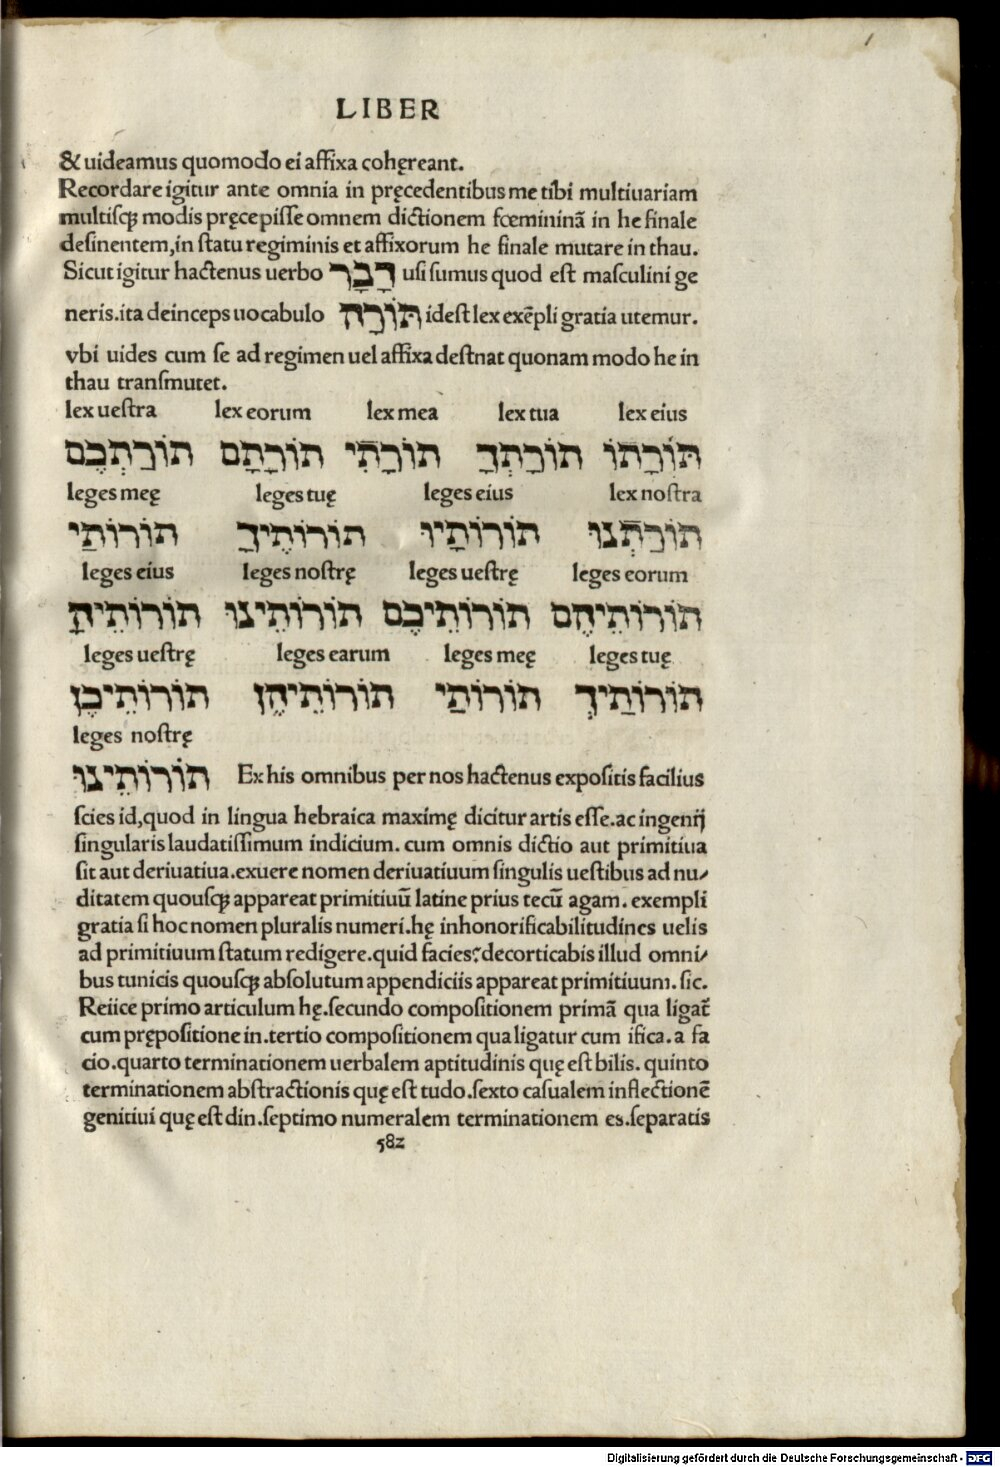 LIBER
& uideamus quomodo ei affixa cohęreant.
Recordare igitur ante omnia in pręcedentibus me tibi multiuariam
multisq̨ modis pręcepisse omnem dictionem fœmininā in he finale
desinentem, in statu regiminis et affixorum he finale mutare in thau.
Sicut igitur hactenus uerbo דָּבָר usi sumus quod est masculini ge
neris. ita deinceps uocabulo תּוֹרָה idest lex exēpli gratia utemur.
vbi uides cum se ad regimen uel affixa destnat quonam modo he in
thau transmutet.
lex uestra lex eorum lex mea lex tua lex eius
תּוֹרָתוֹ תוֹרָתְךָ תוֹרָתִי תוֹרָתָם תוֹרַתְכֶם
leges meę leges tuę leges eius lex nostra
תוֹרַתְנוּ תוֹרוֹתָיו תוֹרוֹתֶיךָ תוֹרוֹתַי
leges eius leges nostrę leges uestrę leges eorum
תוֹרוֹתֵיהֶם תוֹרוֹתֵיכֶם תוֹרוֹתֵינוּ תוֹרוֹתֵיהָ
leges uestrę leges earum leges meę leges tuę
תוֹרוֹתַיִךְ תוֹרוֹתַי תוֹרוֹתֵיהֶן תוֹרוֹתֵיכֶן
leges nostrę
תוֹרוֹתֵינוּ Ex his omnibus per nos hactenus expositis facilius
scies id, quod in lingua hebraica maximę dicitur artis esse. ac ingenij
singularis laudatissimum indicium. cum omnis dictio aut primitiua
sit aut deriuatiua. exuere nomen deriuatiuum singulis uestibus ad nu/
ditatem quousq̨ appareat primitiuū latine prius tecū agam. exempli
gratia si hoc nomen pluralis numeri. hę inhonorificabilitudines uelis
ad primitiuum statum redigere. quid facies? decorticabis illud omni/
bus tunicis quousq̨ absolutum appendiciis appareat primitiuum. sic.
Reiice primo articulum hę. secundo compositionem primā qua ligat̄
cum prępositione in. tertio compositionem qua ligatur cum ifica. a fa
cio. quarto terminationem uerbalem aptitudinis quę est bilis. quinto
terminationem abstractionis quę est tudo. sexto casualem inflectionē
genitiui quę est din. septimo numeralem terminationem es. separatis
582
1
Digitalisierung gefördert durch die Deutsche Forschungsgemeinschaft - DFG